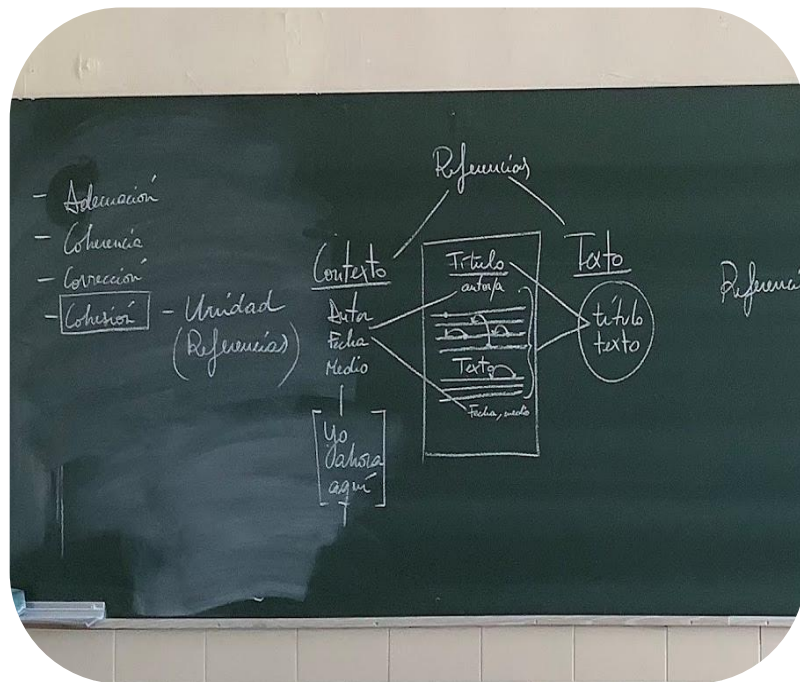 - Adecuación
- Coherencia
- Corrección
- Cohesión - Unidad
(Referencias)
Referencias
Contexto
Autor
Fecha
Medio
Yo
ahora
aquí
Título
autor/a
Texto
Fecha, medio
Texto
título
texto
Referenci